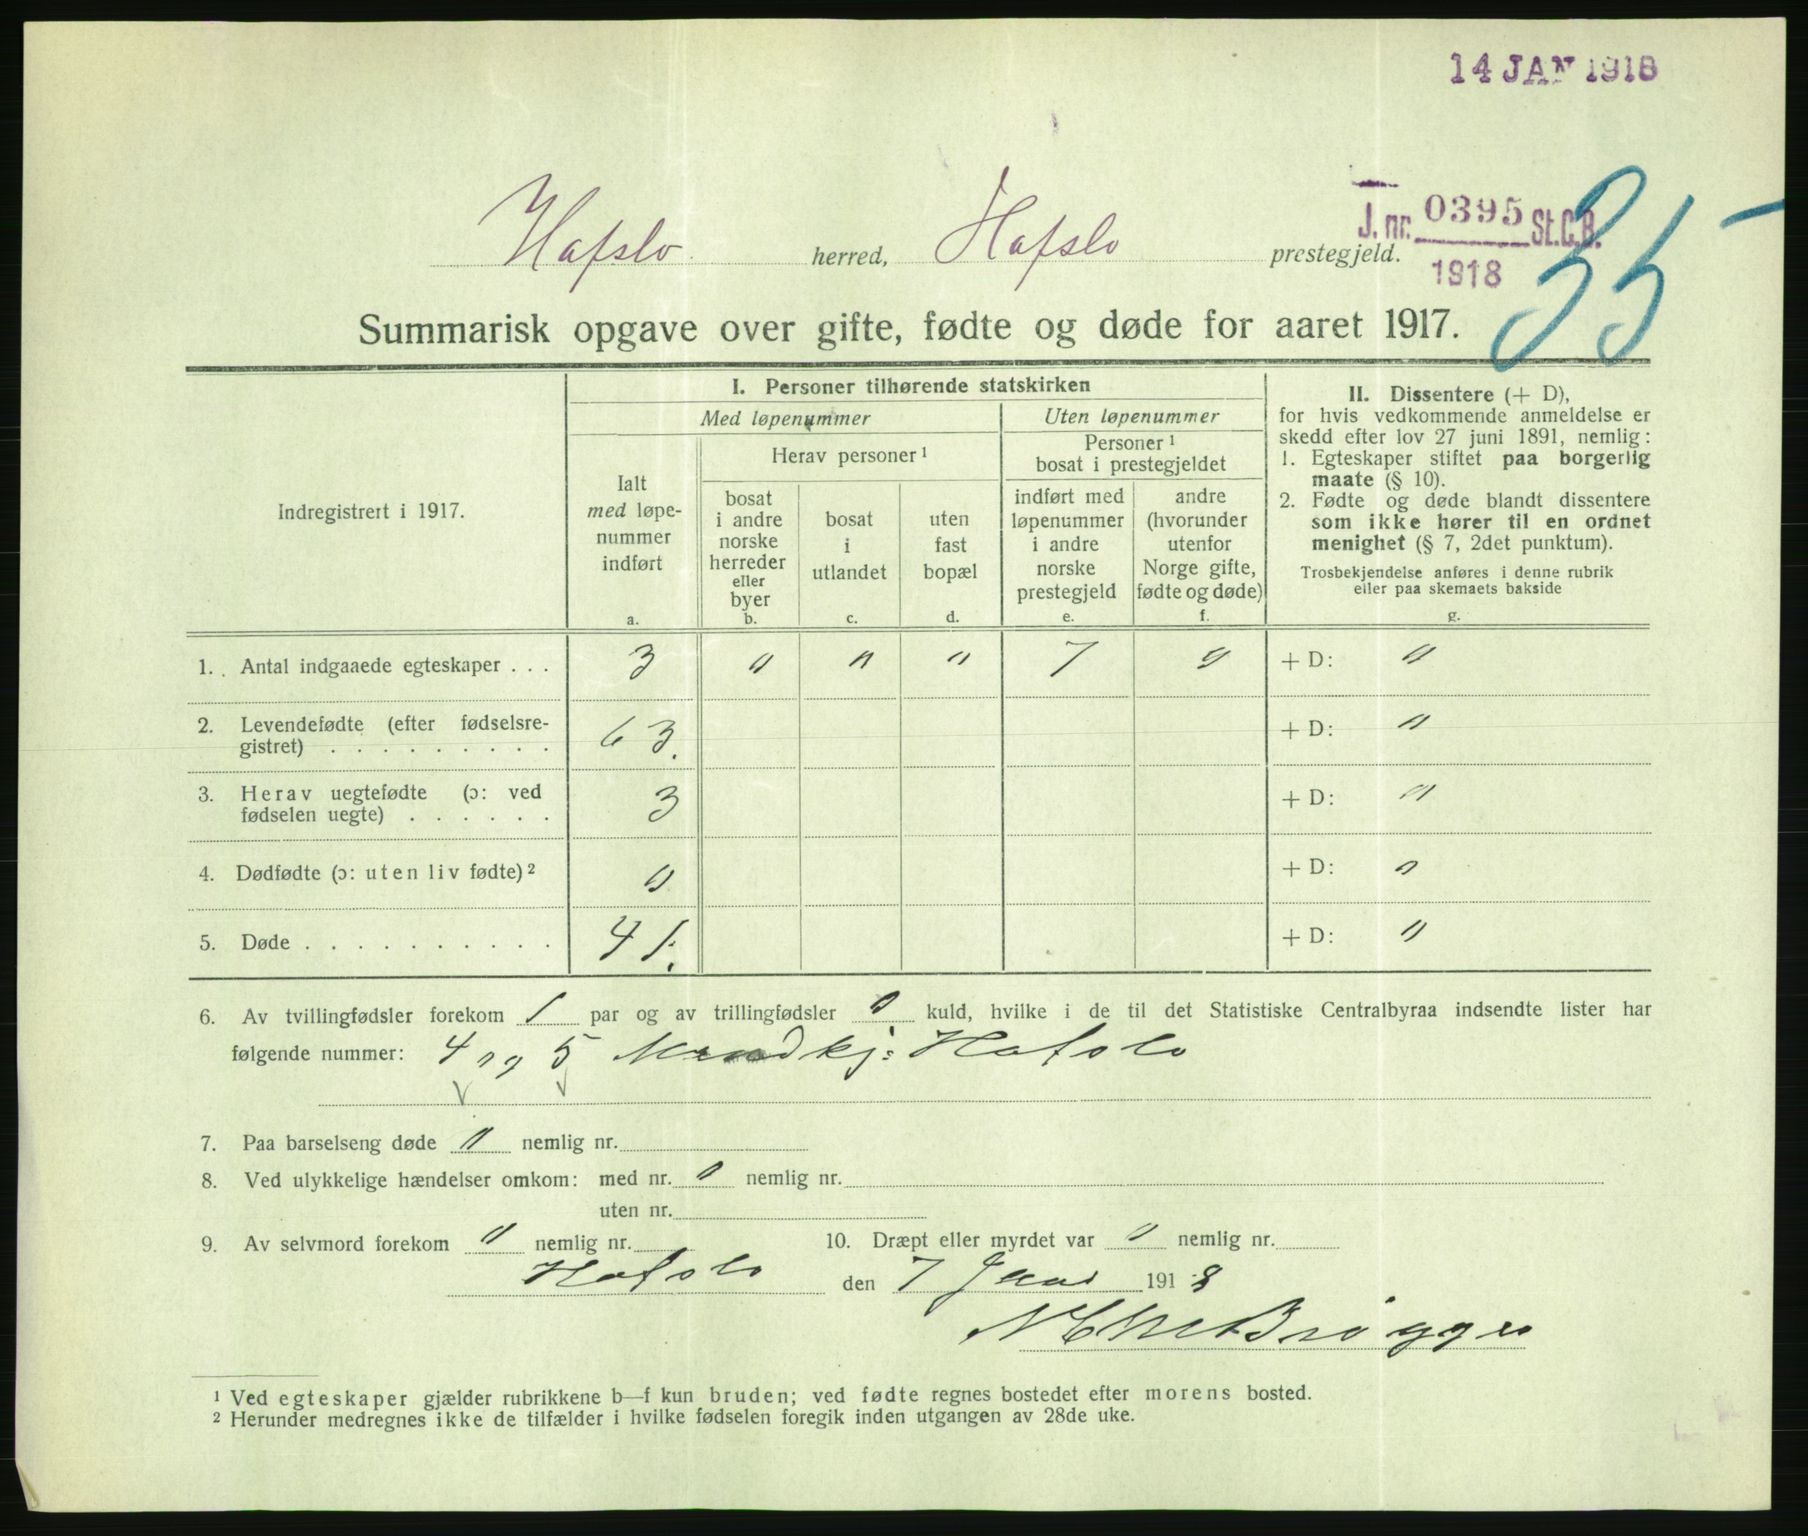 14 JAN 1918
J. nr. 0395 St.C.B.
1918
35
Hafslo herred, Hafslo prestegjeld.
Summarisk opgave over gifte, fødte og døde for aaret 1917.
Indregistrert i 1917.
I. Personer tilhørende statskirken
Med løpenummer
Uten løpenummer
Ialt
med løpe-
nummer
indført
a.
Herav personer ¹
bosat
i andre
norske
herreder
eller
byer
b.
bosat
i
utlandet
c.
uten
fast
bopæl
d.
Personer ¹
bosat i prestegjeldet
indført med
løpenummer
i andre
norske
prestegjeld
e.
andre
(hvorunder
utenfor
Norge gifte,
fødte og døde)
f.
II. Dissentere (+ D),
for hvis vedkommende anmeldelse er
skedd efter lov 27 juni 1891, nemlig:
1. Egteskaper stiftet paa borgerlig
maate (§ 10).
2. Fødte og døde blandt dissentere
som ikke hører til en ordnet
menighet (§ 7, 2det punktum).
Trosbekjendelse anføres i denne rubrik
eller paa skemaets bakside
g.
1. Antal indgaaede egteskaper . . . 3 0 0 0 7 0 + D: 0
2. Levendefødte (efter fødselsre-
gistret) . . . . . . . . . 63. + D: 0
3. Herav uegtefødte (ɔ: ved
fødselen uegte) . . . . . . 3 + D: 0
4. Dødfødte (ɔ: uten liv fødte) ² 0 + D: 0
5. Døde . . . . . . . . . . 41. + D: 0
6. Av tvillingfødsler forekom 1 par og av trillingfødsler 0 kuld, hvilke i de til det Statistiske Centralbyraa indsendte lister har
følgende nummer: 4 og 5 Mandkj: Hafslo
7. Paa barselseng døde 0 nemlig nr.
8. Ved ulykkelige hændelser omkom: med nr. 0 nemlig nr.
uten nr.
9. Av selvmord forekom 0 nemlig nr. 10. Dræpt eller myrdet var 0 nemlig nr.
Hafslo den 7 Januar 1918
Brøgger
¹ Ved egteskaper gjælder rubrikkene b—f kun bruden; ved fødte regnes bostedet efter morens bosted.
² Herunder medregnes ikke de tilfælder i hvilke fødselen foregik inden utgangen av 28de uke.